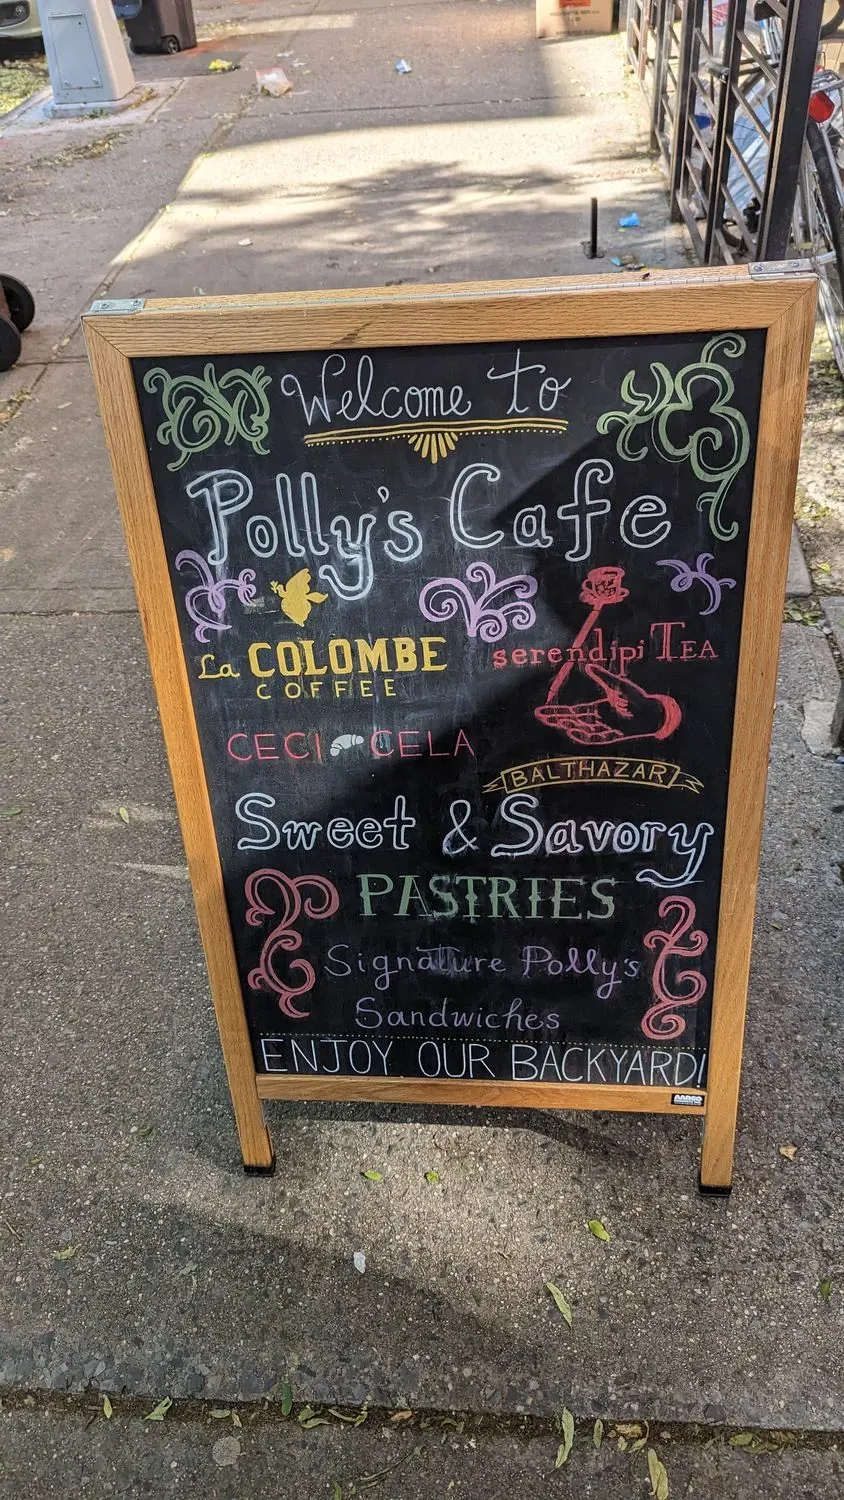 Welcome to
Polly's Cafe
La COLOMBE
COFFEE
serendipiTEA
CECI CELA
BALTHAZAR
Sweet & Savory
PASTRIES
Signature Polly's
Sandwiches
ENJOY OUR BACKYARD!
AARCO